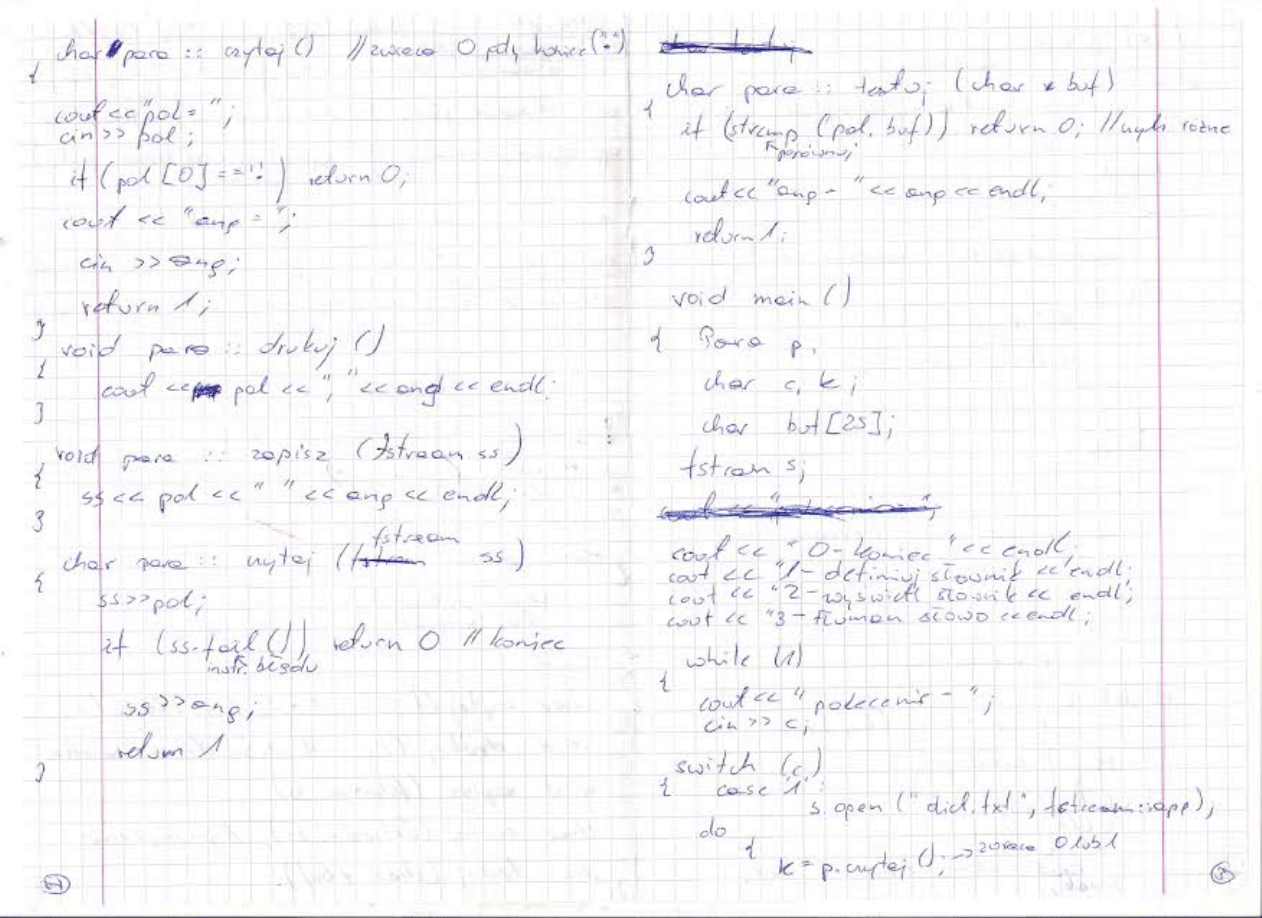 char para :: czytaj () //zwraca 0 gdy koniec(".")
{
cout << "pol = ";
cin >> pol;
if (pol [0] == '.' ) return 0;
cout << "ang = ";
cin >> ang;
return 1;
}
void para :: drukuj ()
{
cout << pol << ", " << ang << endl;
}
void para :: zapisz (fstream ss)
{
ss << pol << " " << ang << endl;
}
char para :: czytaj (fstream ss)
{
ss >> pol;
if (ss.fail ()) return 0 // koniec
instr. błędu
ss >> ang;
return 1
}
2
char para :: testuj (char * buf)
{
if (strcmp (pol, buf)) return 0; // różne
porównuj
cout << "ang - " << ang << endl;
return 1;
}
void main ()
{ Para p,
char c, k;
char buf [25];
fstream s;
cout << " 0 - koniec " << endl;
cout << "1 - definiuj słownik << endl;
cout << "2 - wyświetl słownik << endl;
cout << "3 - tłuman słowo << endl;
while (1)
{
cout << " polecenie - ";
cin >> c;
switch (c)
{ case '1' :
s.open ("dict.txt", fstream::app);
do
{
k = p.czytaj (); -> zwraca 0 lub 1
3